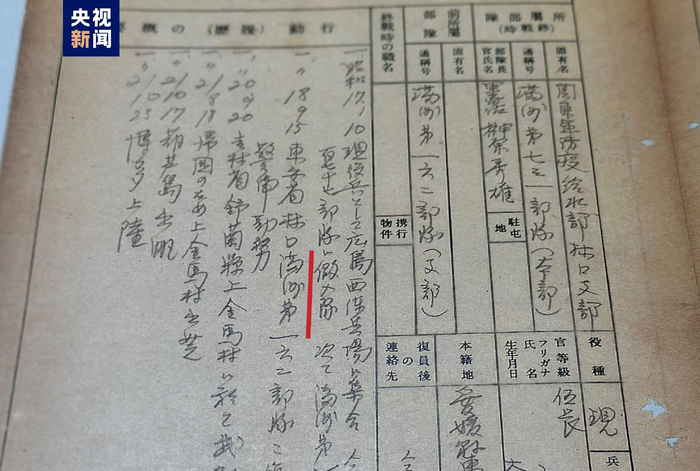 央视
新闻
所屬部隊
(終戰時)
固有名
關東軍防疫給水部 林口支部
通稱号
満洲第七三一部隊(本部)
部隊長
官氏名
榊原秀雄
駐屯
地
前所屬
部隊
固有名
通稱号
満洲第一六二部隊(支部)
終戰時の職名
携行
物件
役種
現
兵
官等級
伍長
フリガナ
氏名
生年月日
本籍地
愛媛縣
復員後
の
連絡先
行動(履歷)の概要
一、昭和17、10 現役兵として広島西練兵場に集合
部隊に假入隊 次で満洲第
〃18 9 15 東安省林口満洲第一六二部隊ニ
警備勤務
〃20 9 20 吉林省舒蘭縣上金馬村に於て
〃21 8 18 帰国のため上金馬村出発
〃21 10 17 葫芦島出帆
〃21 10 25 博多上陸